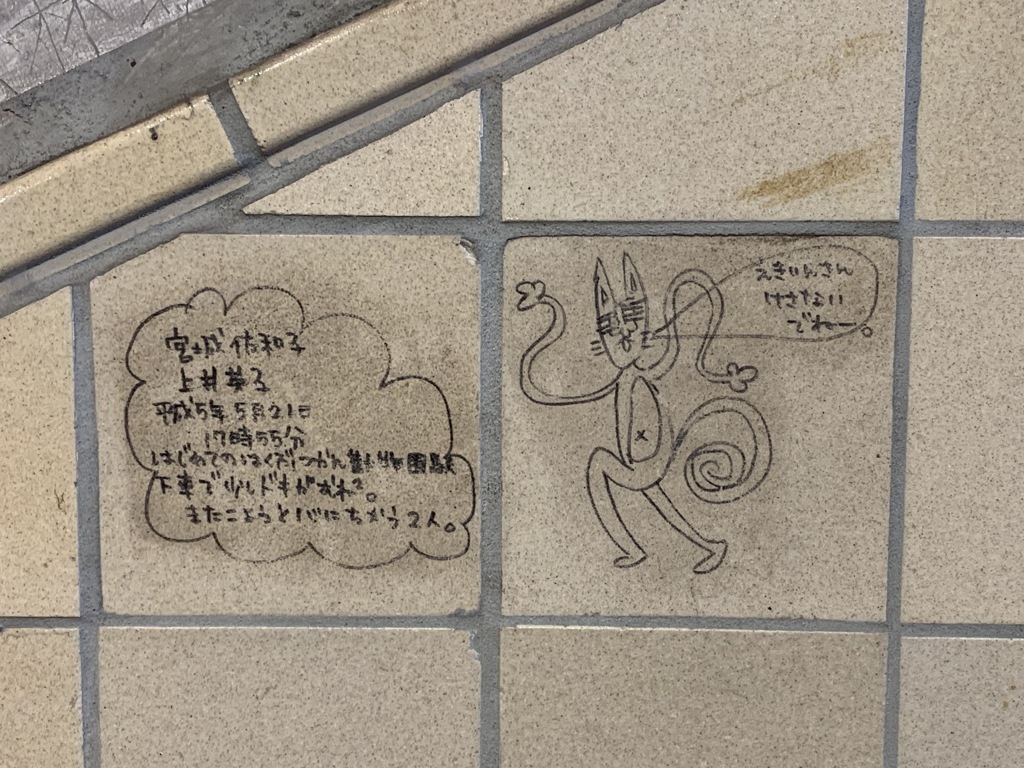 宮城佐和子
上井英子
平成5年5月21日
17時55分
はじめてのはくぶつかん動物園駅
下車で少しドキがむね²。
またこようと心にちかう2人。
えきいんさん
けさない
でねー。